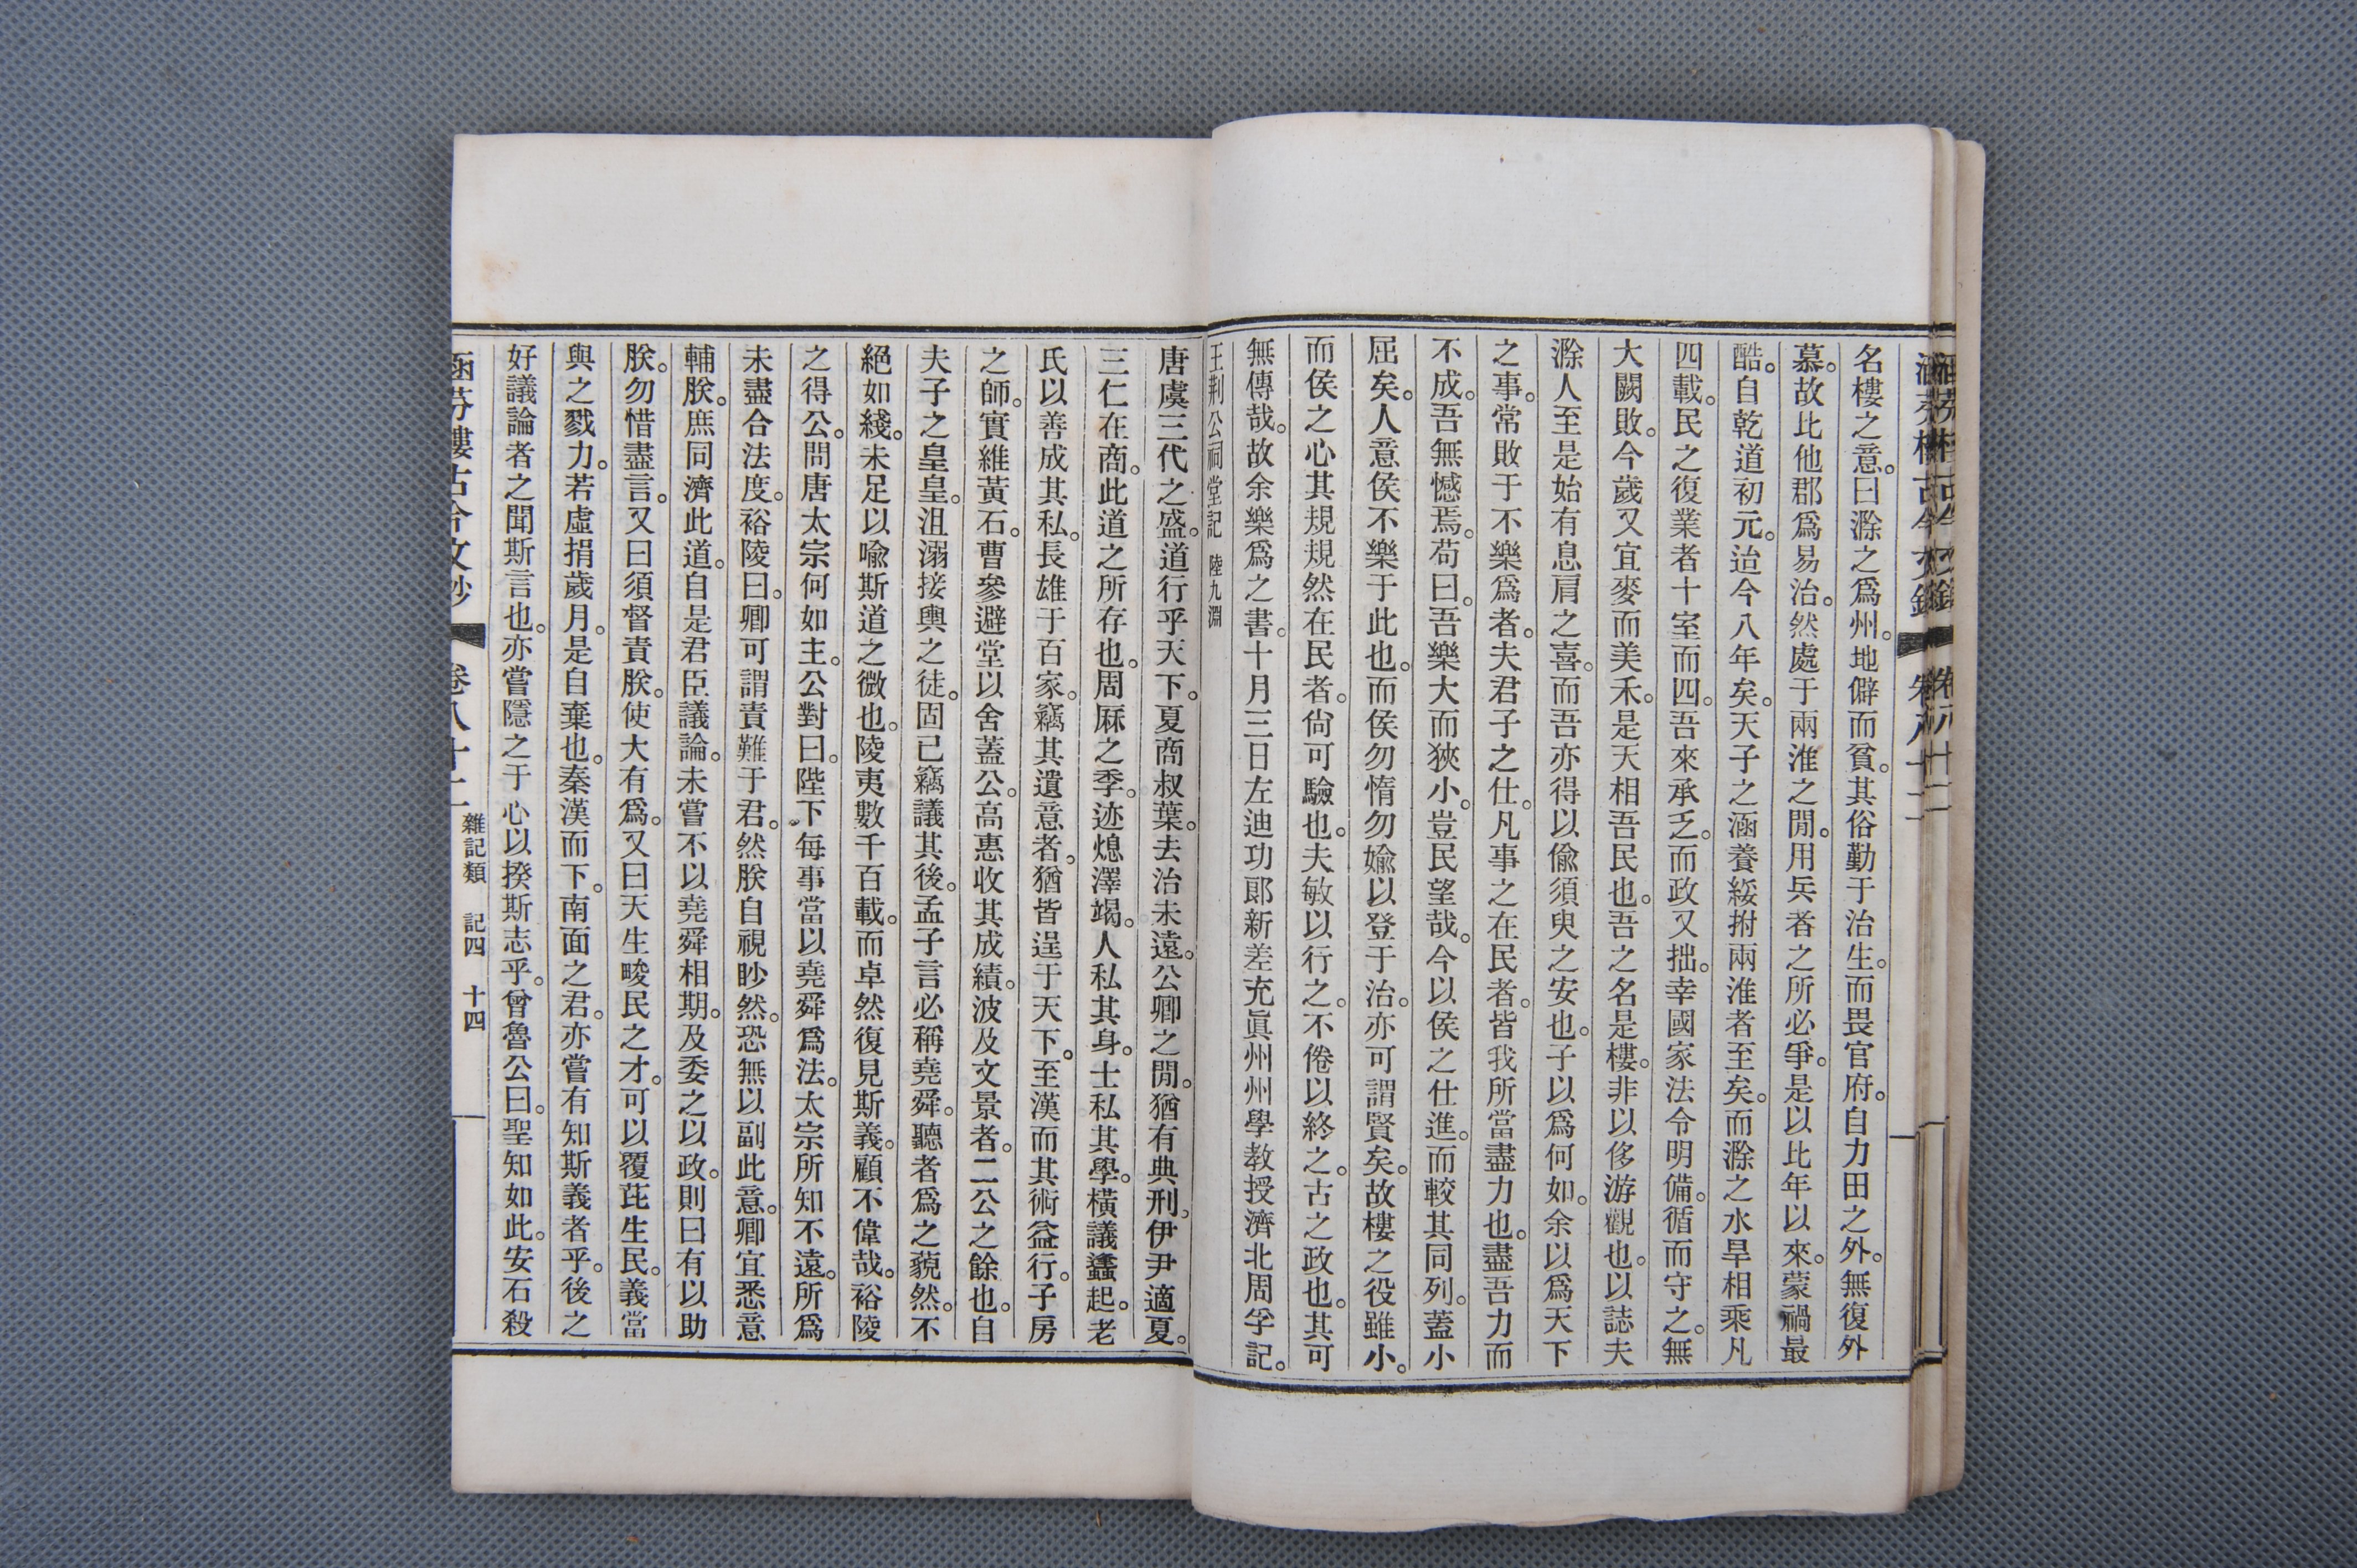 名樓之意。曰滁之爲州。地僻而貧。其俗勤于治生。而畏官府。自力田之外。無復外
慕。故比他郡爲易治。然處于兩淮之閒。用兵者之所必爭。是以比年以來。蒙禍最
酷。自乾道初元。迨今八年矣。天子之涵養綏拊兩淮者至矣。而滁之水旱相乘凡
四載。民之復業者十室而四。吾來承乏。而政又拙。幸國家法令明備。循而守之。無
大闕敗。今歲又宜麥而美禾。是天相吾民也。吾之名是樓。非以侈游觀也。以誌夫
滁人至是始有息肩之喜。而吾亦得以偸須臾之安也。子以爲何如。余以爲天下
之事。常敗于不樂爲者。夫君子之仕。凡事之在民者。皆我所當盡力也。盡吾力而
不成。吾無憾焉。苟曰。吾樂大而狹小。豈民望哉。今以侯之仕進。而較其同列。蓋小
屈矣。人意侯不樂于此也。而侯勿惰勿婾以登于治。亦可謂賢矣。故樓之役雖小。
而侯之心其規規然在民者。尙可驗也。夫敏以行之。不倦以終之。古之政也。其可
無傳哉。故余樂爲之書。十月三日左迪功郞新差充眞州州學敎授濟北周孚記。
王荆公祠堂記 陸九淵
唐虞三代之盛。道行乎天下。夏商叔葉。去治未遠。公卿之閒。猶有典刑。伊尹適夏。
三仁在商。此道之所存也。周厤之季。迹熄澤竭。人私其身。士私其學。橫議蠭起。老
氏以善成其私。長雄于百家。竊其遺意者。猶皆逞于天下。至漢而其術益行。子房
之師。實維黃石。曹參避堂以舍蓋公。高惠收其成績。波及文景者。二公之餘也。自
夫子之皇皇。沮溺接輿之徒。固已竊議其後。孟子言必稱堯舜。聽者爲之藐然。不
絕如綫。未足以喩斯道之微也。陵夷數千百載。而卓然復見斯義。顧不偉哉。裕陵
之得公。問唐太宗何如主。公對曰。陛下每事當以堯舜爲法。太宗所知不遠。所爲
未盡合法度。裕陵曰。卿可謂責難于君。然朕自視眇然。恐無以副此意。卿宜悉意
輔朕。庶同濟此道。自是君臣議論。未嘗不以堯舜相期。及委之以政。則曰有以助
朕。勿惜盡言。又曰須督責朕。使大有爲。又曰天生畯民之才。可以覆芘生民。義當
與之戮力。若虛捐歲月。是自棄也。秦漢而下。南面之君。亦嘗有知斯義者乎。後之
好議論者之聞斯言也。亦嘗隱之于心以揆斯志乎。曾魯公曰。聖知如此。安石殺
涵芬樓古今文鈔 卷八十二 雜記類 記四 十四